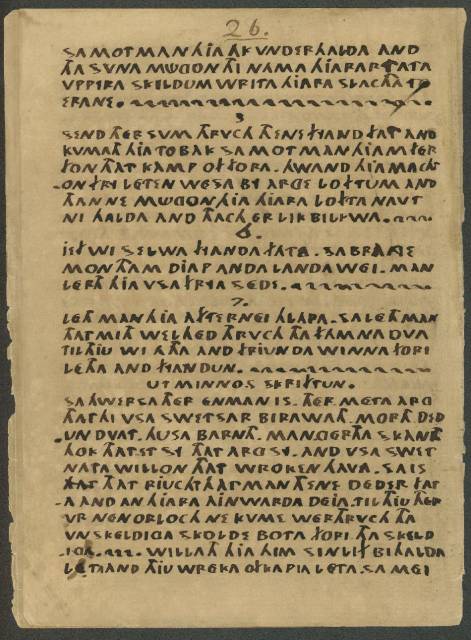 26.
SA MOT MAN HIA AK UNDERHALDA AND
THA SUNA MUGON THI NAMA HIARAR TATA
UPPERA SKELDUM WRITA HIARA SLACHTA TO
ERANE.
5
SEND THER SUM THRUCH THENE FIAND FAT AND
KUMATH HIA TO BAK SA MOT MAN HIAM FER
FON THAT KAMP OF FORA. HWAND HIA MACHT
ON FRI LETEN WESA BY ARGE LOFTUM AND
THAN NE MUGON HIA HIARA LOFTA NAUT
NI HALDA AND TACH ER LIK BILIWA.
6.
IEF WI SELWA FIANDA FATA. SA BRANGE
MON THAM DIAP ANDA LANDA WEI. MAN
LERTH HIA USA FRYA SEDE.
7.
LETH MAN HIA AFTERNEI HLAPA. SA LETH MAN
THAT MITH WELHED THRUCH THA FAMNA DUA
TIL THIU WI ATHA AND FRIUNDA WINNA FORI
LETHA AND FIANDUN.
UT MINNOS SKRIFTUN.
SAHWERSA THER EN MAN IS. THER META ARG
THAT HI USA SWETSAR BIRAWATH. MORTH DED
UN DUAT. HUSA BARNTH. MANGERTHA SKANTH
HOK THAT ET SY THAT ARG SY. AND USA SWET
NATA WILLON THAT WROKEN HAVA. SA IS
THAT RIUCHT THAT MAN THENE DEDER FAT
A AND AN HIARA AINWARDA DEIA. TIL THIU THER
UR NEN ORLOCH NE KUME WERTHRUCH THA
UNSKELDIGA SKOLDE BOTA FORI THA SKELD
IGA. WILLATH HIA HIM SIN LIF BIHALDA
LETA AND THIU WREKA OFKAPIA LETA. SA MEI